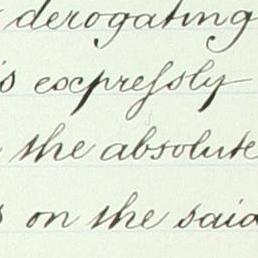 derogating
s expressly
the absolute
s on the said